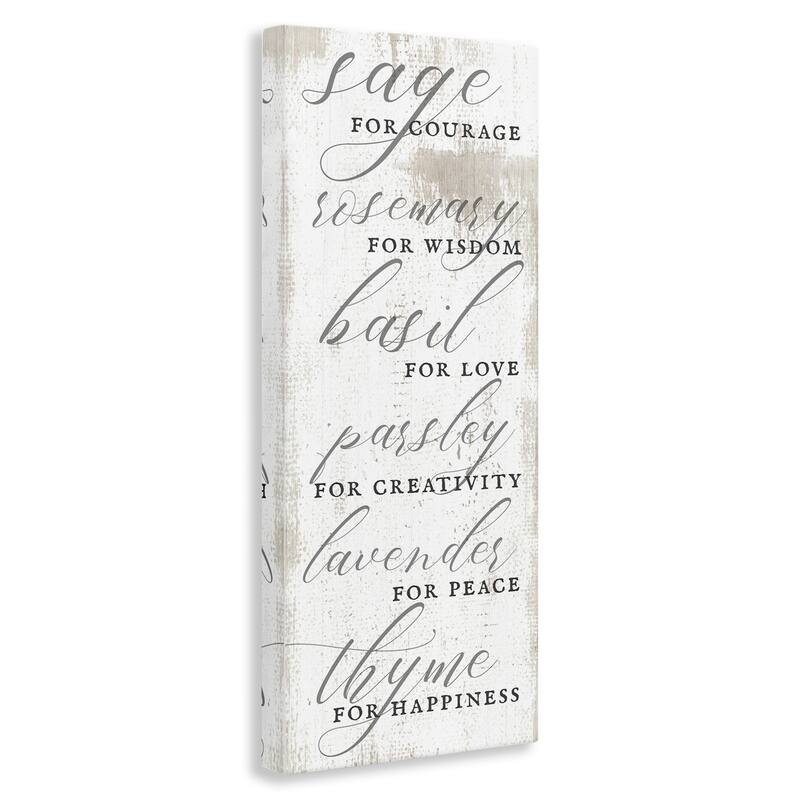 sage
FOR COURAGE
rosemary
FOR WISDOM
basil
FOR LOVE
parsley
FOR CREATIVITY
lavender
FOR PEACE
thyme
FOR HAPPINESS